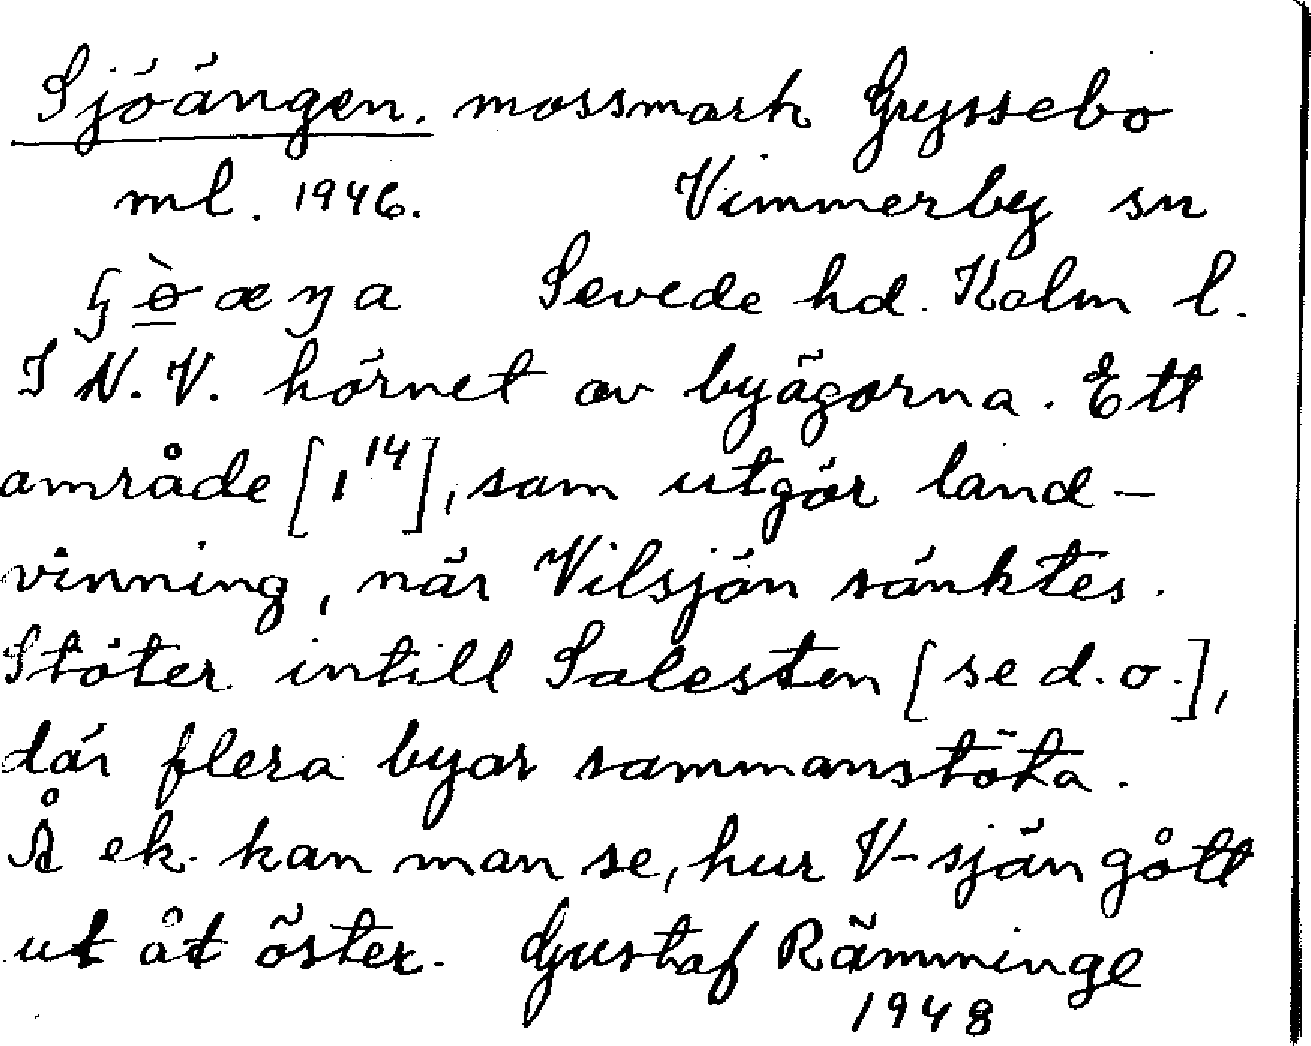 Sjöängen. mossmark Gryssebo
ml. 1946. Vimmerby sn
Sevede hd. Kalm l.
I N. V. hörnet av byägorna. Ett
område [1 14], som utgör land-
vinning, när Vilsjön sänktes.
Stöter intill Salesten [se d. o.],
där flera byar sammanstöta.
Å ek. kan man se, hur V-sjön gått
ut åt öster. Gustaf Rämminge
1948